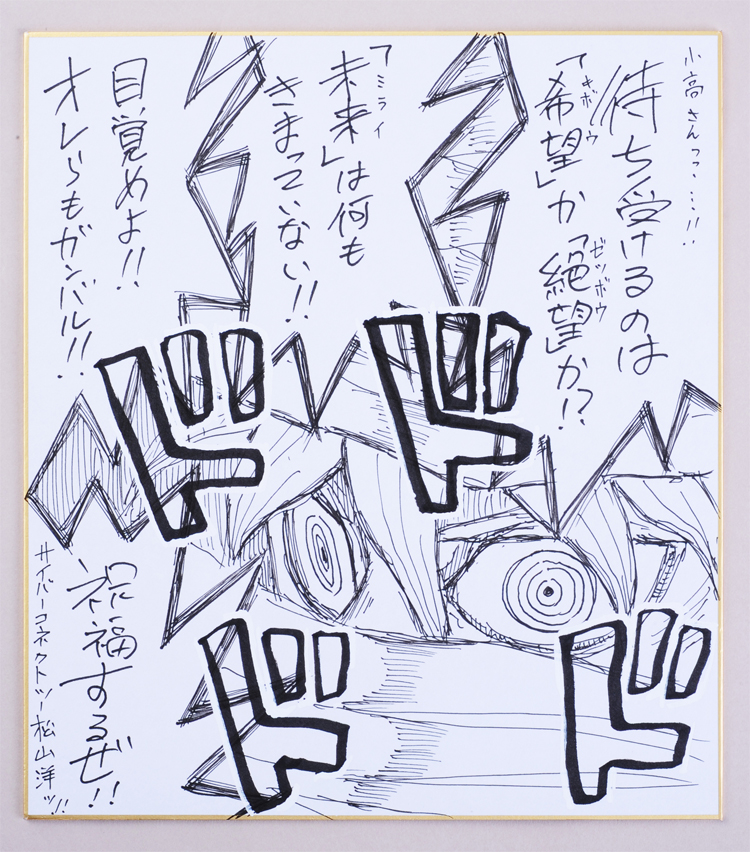 小高さんっっ・…!!
待ち受けるのは
「希望」か「絶望」か!?
キボウ
ゼツボウ
「未来」は何も
ミライ
きまっていない!!
目覚めよ!!
オレらもガンバル!!
祝福するぜ!!
サイバーコネクトツー松山洋ッ!!
ド
ド
ド
ド